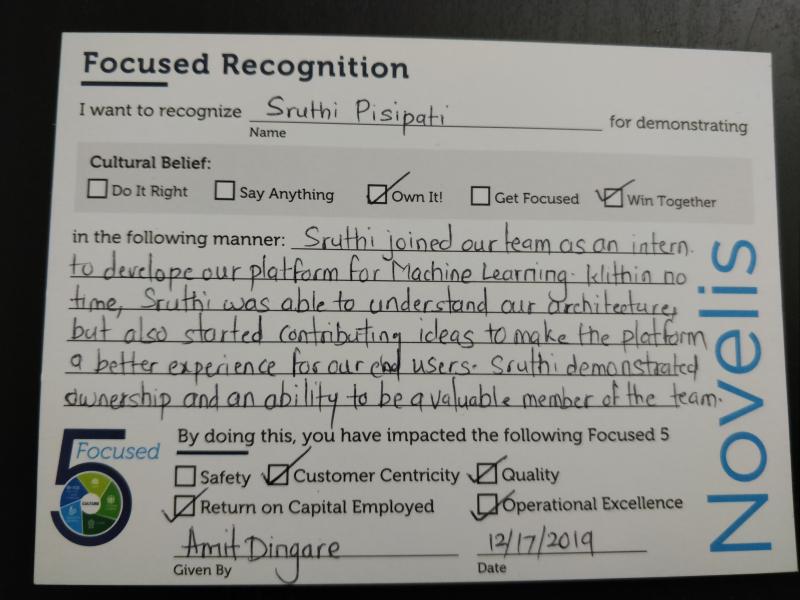 Focused Recognition
I want to recognize Sruthi Pisipati for demonstrating
Name
Cultural Belief:
Do It Right Say Anything Own It! Get Focused Win Together
in the following manner: Sruthi joined our team as an intern.
to develope our platform for Machine Learning. Within no
time, Sruthi was able to understand our architecture,
but also started contributing ideas to make the platform
a better experience for our end users. Sruthi demonstrated
ownership and an ability to be a valuable member of the team.
Novelis
5 Focused
CULTURE
By doing this, you have impacted the following Focused 5
Safety Customer Centricity Quality
Return on Capital Employed Operational Excellence
Amit Dingare 12/17/2019
Given By Date